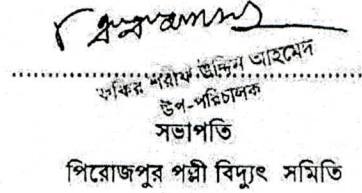 ফকির শরীফ উদ্দিন আহমেদ
উপ-পরিচালক
সভাপতি
পিরোজপুর পল্লী বিদ্যুৎ সমিতি